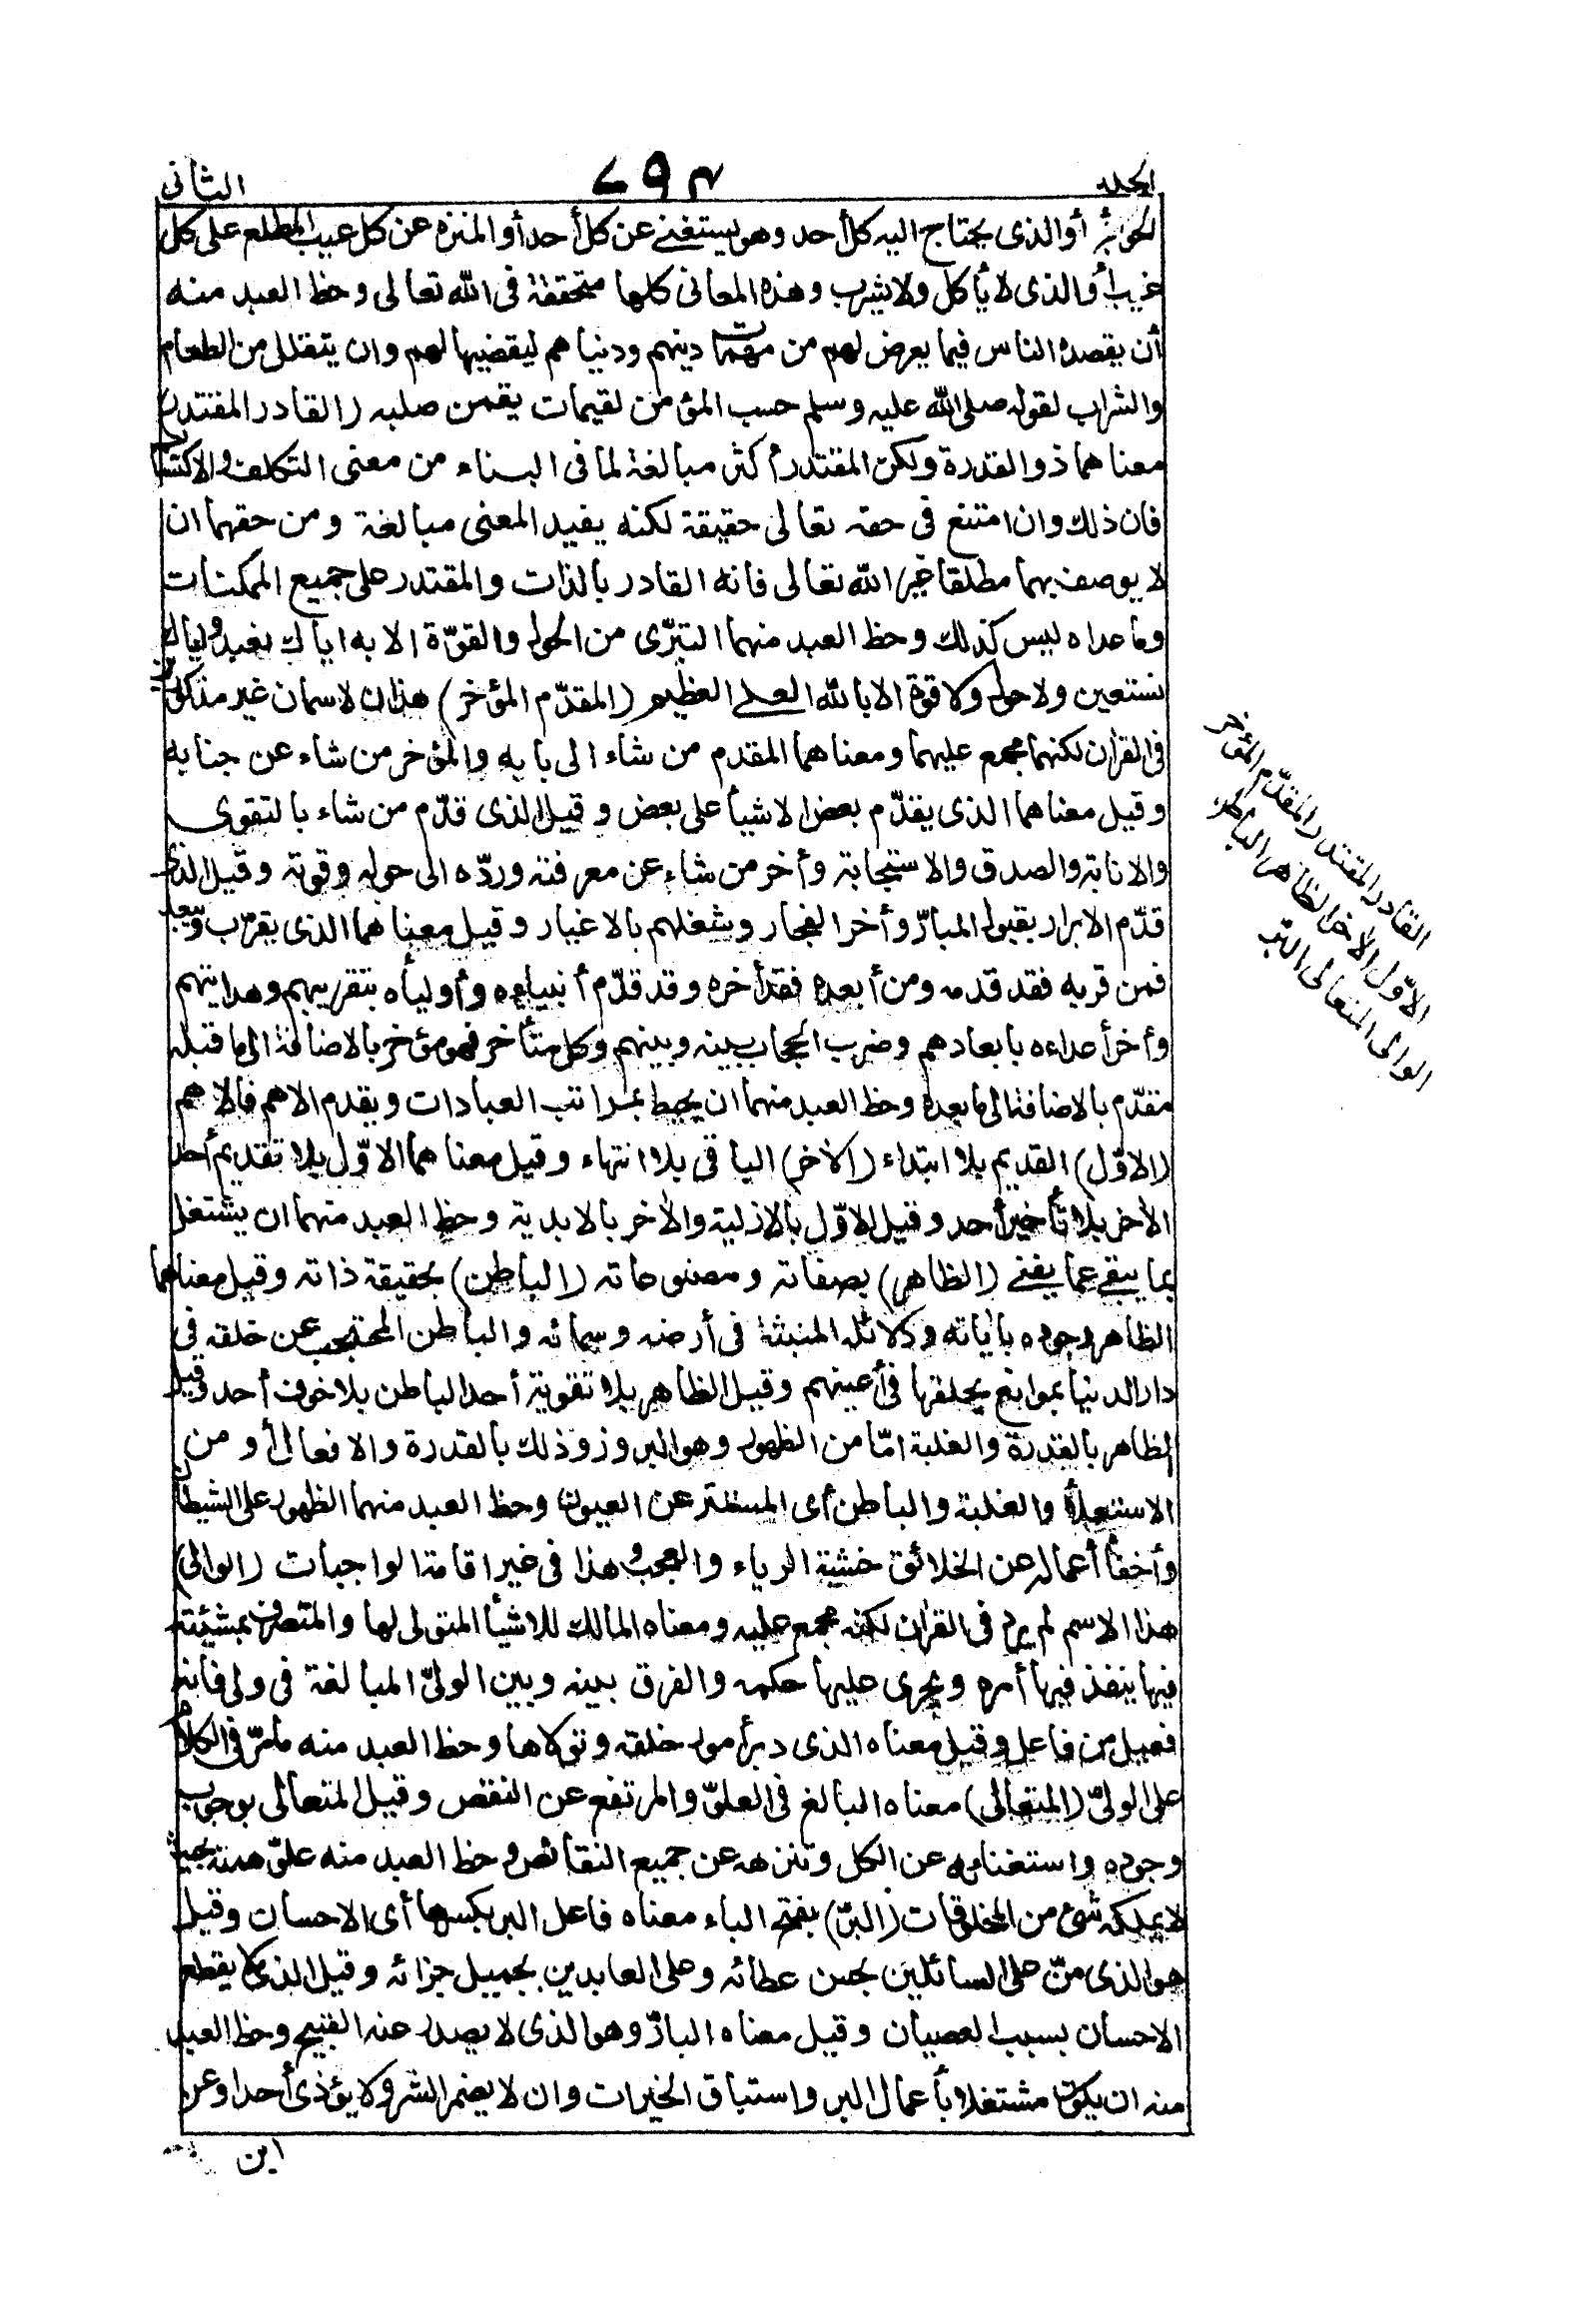 الجلد ٤٩٧ الثاني
الحوائج أو الذى يحتاج اليه كل أحد وهو يستغنى عن كل أحد أو المنزه عن كل عيب المطلع على كل
غيب أو الذى لا يأكل ولا يشرب وهذه المعانى كلها متحققة فى الله تعالى وحظ العبد منه
أن يقصده الناس فيما يعرض لهم من مهمات دينهم ودنياهم ليقضيها لهم وان يتقلل من الطعام
والشراب لقوله صلى الله عليه وسلم حسب المؤمن لقيمات يقمن صلبه (القادر المقتدر)
معناهما ذو القدرة ولكن المقتدر أكثر مبالغة لما فى البناء من معنى التكلف والاكتساب
فان ذلك وان امتنع فى حقه تعالى حقيقة لكنه يفيد المعنى مبالغة ومن حقهما ان
لا يوصف بهما مطلقا غير الله تعالى فانه القادر بالذات والمقتدر على جميع الممكنات
وما عداه ليس كذلك وحظ العبد منهما التبرّى من الحول والقوّة الا به اياك نعبد واياك
نستعين ولا حول ولا قوة الا بالله العلى العظيم (المقدّم المؤخر) هذان لاسمان غير مذكورين
فى القرأن لكنهما مجمع عليهما ومعناهما المقدم من شاء الى بابه والمؤخر من شاء عن جنابه
وقيل معناهما الذى يقدّم بعض الاشيأ على بعض وقيل الذى قدّم من شاء بالتقوى
والانابة والصدق والاستجابة وأخر من شاء عن معرفته وردّه الى حوله وقوته وقيل الذى
قدّم الابرار بقبول المبارّ وأخر الفجار وشغلهم بالاغيار وقيل معناهما الذى يقرّب ويبعد
فمن قربه فقد قدمه ومن أبعده فقد أخره وقد قدّم أنبياءه وأوليأه بتقريبهم وهدايتهم
وأخر أعداءه بابعادهم وضرب الحجاب بينه وبينهم وكل متأخر فهو مؤخر بالاضافة الى ما قبله
مقدّم بالاضافة الى ما بعده وحظ العبد منهما ان يحيط بمراتب العبادات ويقدم الاهم فالاهم
(الاوّل) القديم بلا ابتداء (الأخر) الباقى بلا انتهاء وقيل معناهما الاوّل بلا تقديم أحد
الأخر بلا تأخير أحد وقيل الاوّل بالازلية والأخر بالابدية وحظ العبد منهما ان يشتغل
بما يبقى عما يفنى (الظاهر) بصفاته ومصنوعاته (الباطن) بحقيقة ذاته وقيل معناهما
الظاهر وجوده بأياته ودلائله المنبثة فى أرضه وسمائه والباطن المحتجب عن خلقه فى
دار الدنيا بموانع يخلقها فى أعينهم وقيل الظاهر بلا تقوية أحد الباطن بلا خوف أحد وقيل
الظاهر بالقدرة والغلبة امّا من الظهور وهو البروز وذلك بالقدرة والافعال أو من
الاستعلاء والغلبة والباطن أى المستتر عن العيون وحظ العبد منهما الظهور على الشيطان
وأخفأ أعماله عن الخلائق خشية الرياء والعجب وهذا فى غير اقامة الواجبات (الوالى)
هذا الاسم لم يرد فى القرأن لكنه مجمع عليه ومعناه المالك للاشيأ المتولى لها والمتصرف بمشيئته
فيها ينفذ فيها أمره ويجرى عليها حكمه والفرق بينه وبين الولىّ المبالغة فى ولى فانه
فعيل من فاعل وقيل معناه الذى دبر أمور خلقه وتولاها وحظ العبد منه ما مرّ فى الكلام
على الولىّ (المتعالى) معناه البالغ فى العلوّ والمرتفع عن النقص وقيل المتعالى بوجوب
وجوده واستغنائه عن الكل وتنزهه عن جميع النقائص وحظ العبد منه علوّ همته بحيث
لا يملكه شئ من المخلوقات (البرّ) بفتح الباء معناه فاعل البر بكسرها أى الاحسان وقيل
هو الذى منّ على السائلين بحسن عطائه وعلى العابدين بجميل جزائه وقيل الذى لا يقطع
الاحسان بسبب العصيان وقيل معناه البارّ وهو الذى لا يصدر عنه القبيح وحظ العبد
منه ان يكون مشتغلا بأعمال البر واستباق الخيرات وان لا يضمر الشر ولا يؤذى أحدا وعن
ابن
القادر المقتدر المقدّم المؤخر
الاوّل الأخر الظاهر الباطن
الوالى المتعالى البرّ